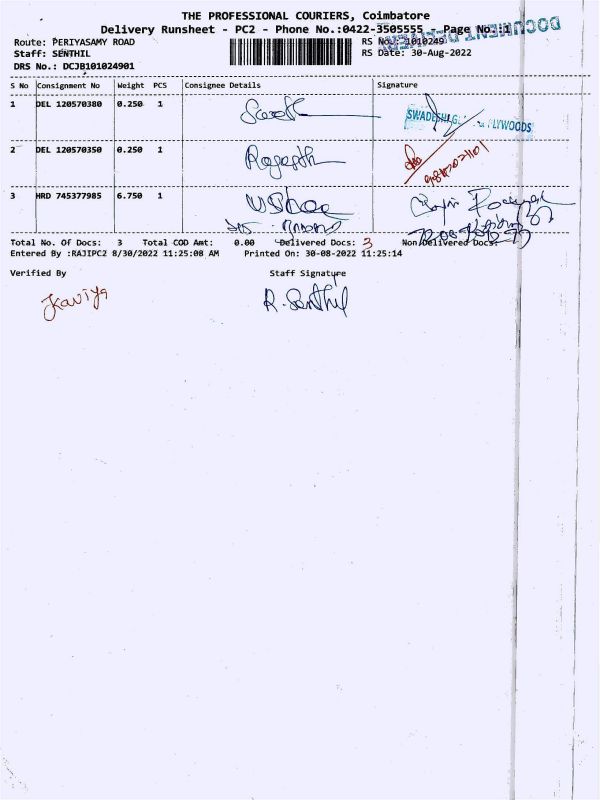 THE PROFESSIONAL COURIERS, Coimbatore
Delivery Runsheet - PC2 - Phone No.:0422-3505555 - Page No.:1
Route: PERIYASAMY ROAD RS No.: 1010249
Staff: SENTHIL RS Date: 30-Aug-2022
DRS No.: DCJB101024901
S No Consignment No Weight PCS Consignee Details Signature
1 DEL 120570380 0.250 1
SWADESHI PLYWOODS
2 DEL 120570350 0.250 1
3 HRD 745377985 6.750 1
Total No. Of Docs: 3 Total COD Amt: 0.00 Delivered Docs: 3 Non Delivered Docs:
Entered By :RAJIPC2 8/30/2022 11:25:08 AM Printed On: 30-08-2022 11:25:14
Verified By Staff Signature
Kaviya R. Senthil